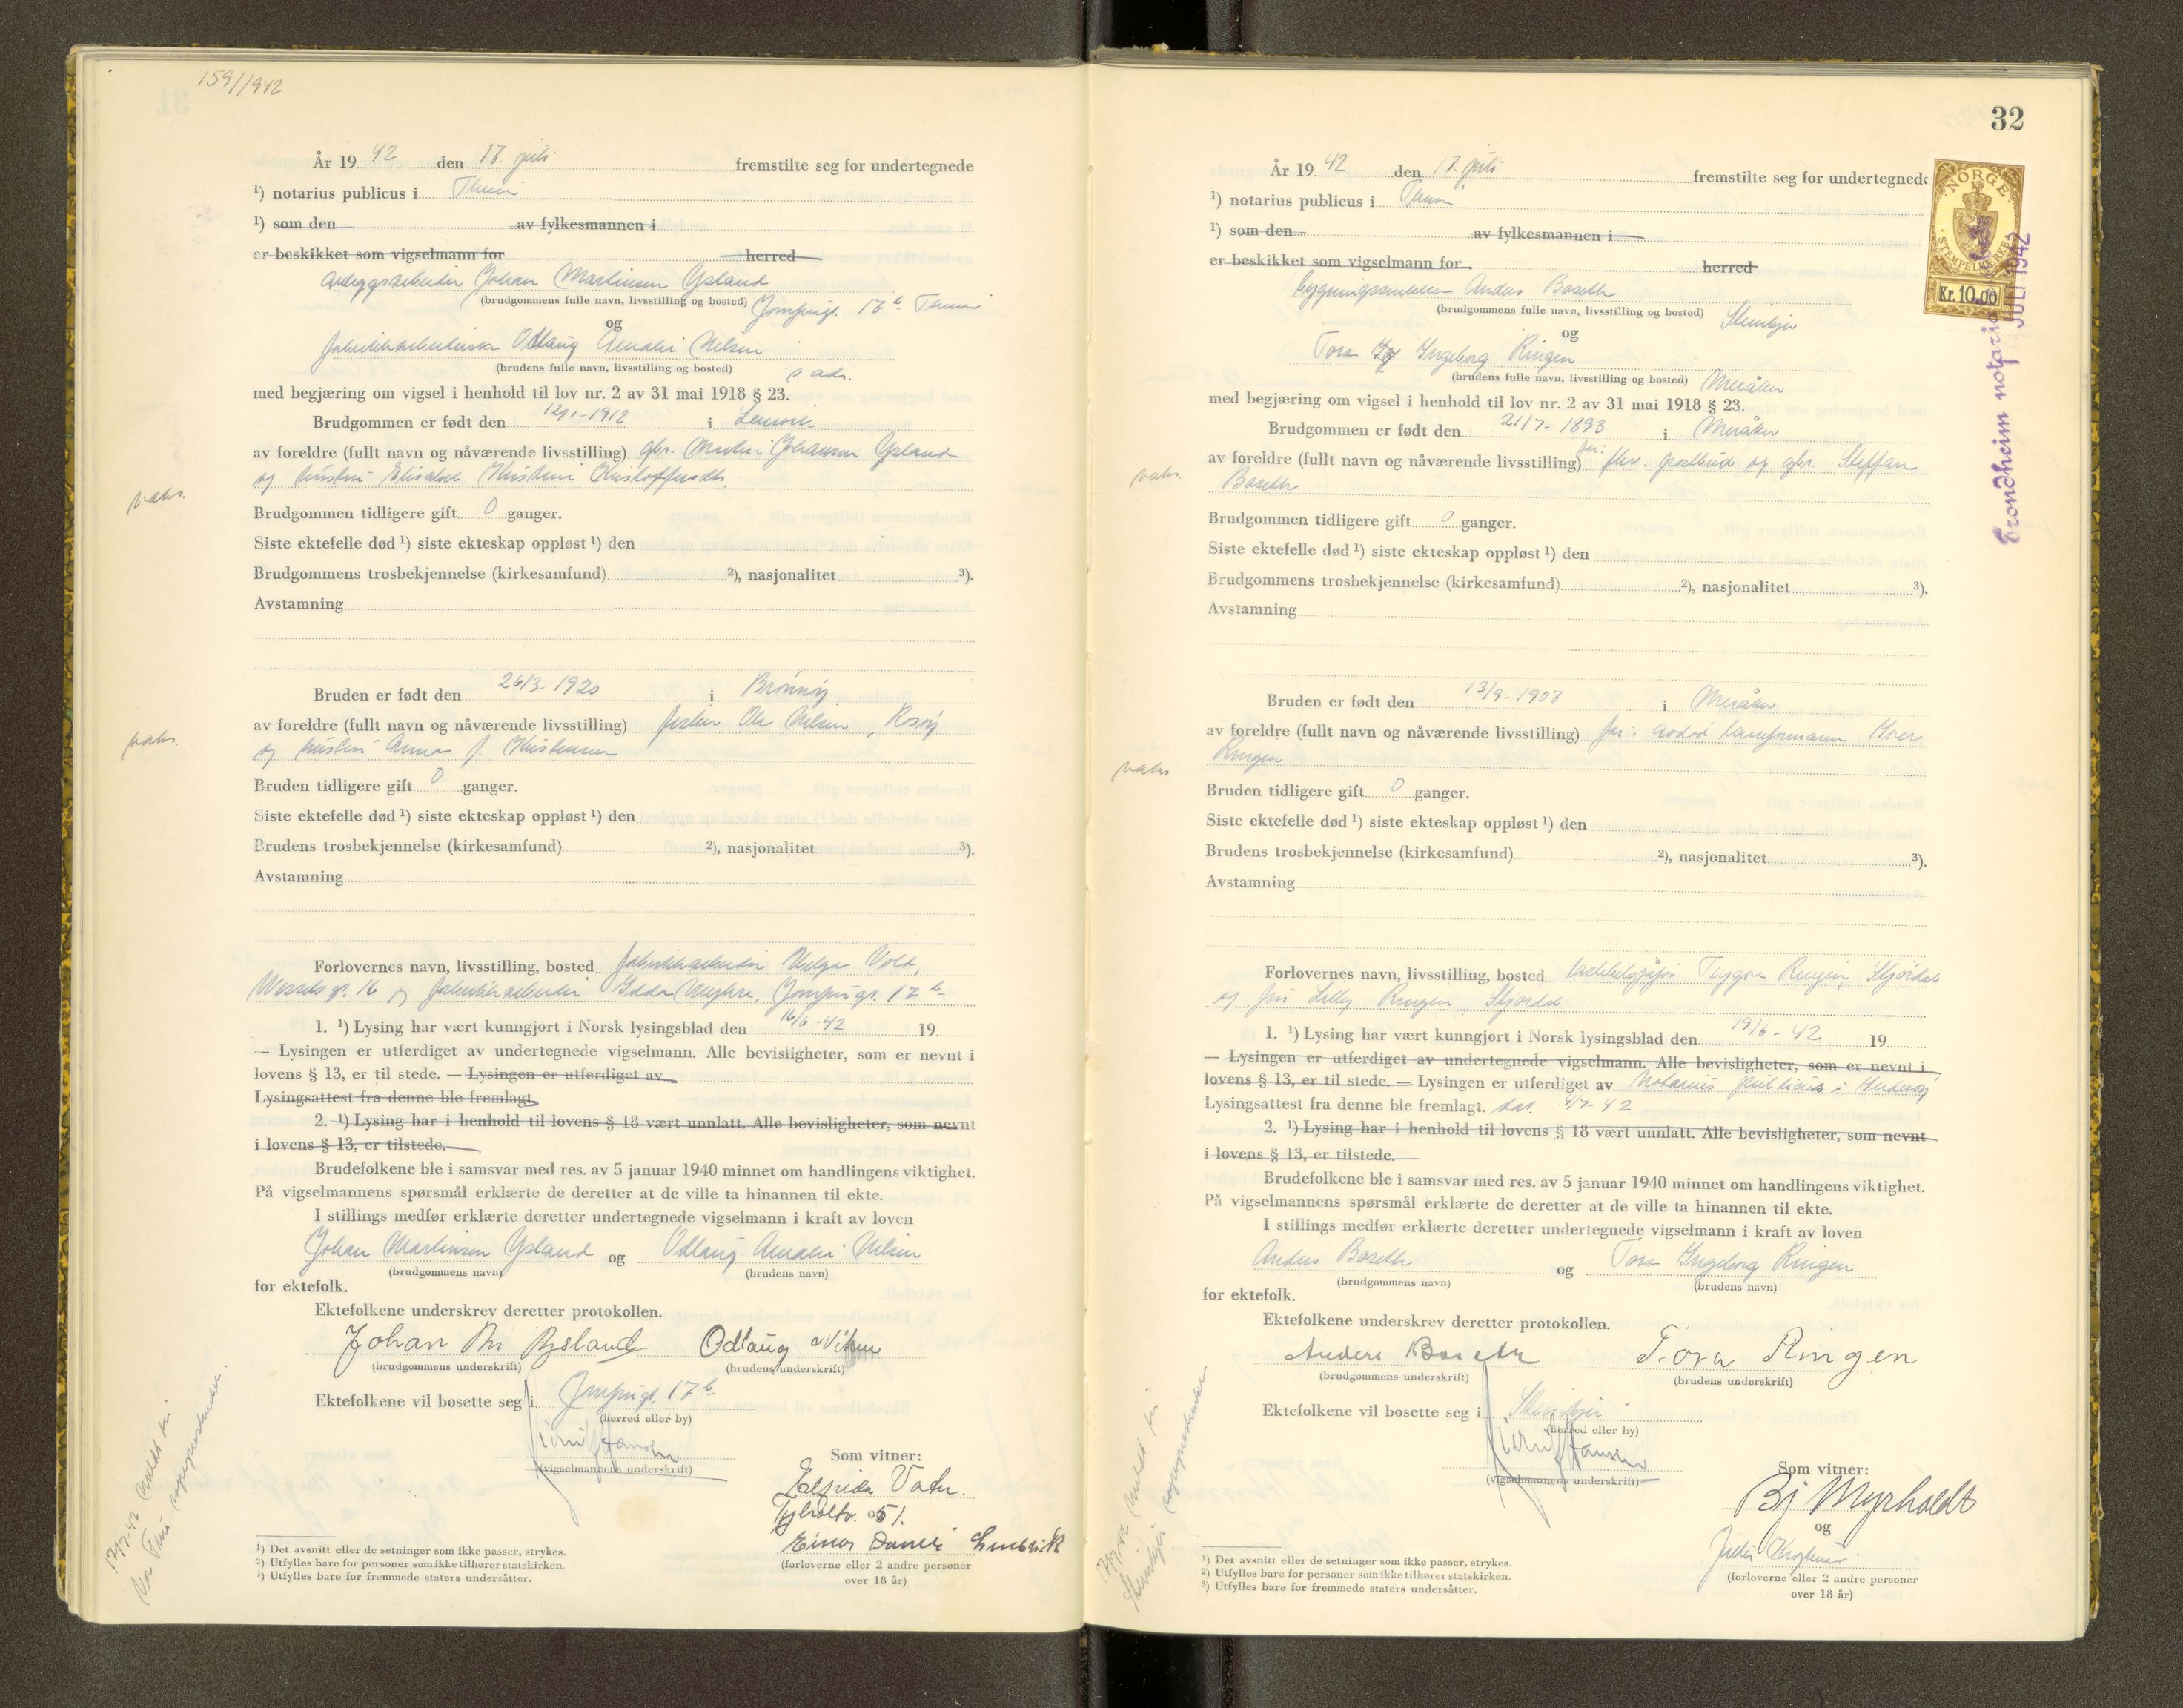 159/1942
År 1942 den 17. juli fremstilte seg for undertegnede
¹) notarius publicus i
¹) som den av fylkesmannen i
er beskikket som vigselmann for herred
Anleggsarbeider Johan Martinsen
(brudgommens fulle navn, livsstilling og bosted) Jomfrugt. 17 b
og
Odlaug Amalie Nilsen
(brudens fulle navn, livsstilling og bosted) s. adr.
med begjæring om vigsel i henhold til lov nr. 2 av 31 mai 1918 § 23.
Brudgommen er født den 12/1-1912 i Lenvik
av foreldre (fullt navn og nåværende livsstilling) gbr. Martin Johansen
og hustru Elisabet
vaks.
Brudgommen tidligere gift 0 ganger.
Siste ektefelle død ¹) siste ekteskap oppløst ¹) den
Brudgommens trosbekjennelse (kirkesamfund) ²), nasjonalitet ³).
Avstamning
Bruden er født den 26/3-1920 i Brønnøy
av foreldre (fullt navn og nåværende livsstilling) fisker Ole Nilsen,
og hustru Anna
vaks.
Bruden tidligere gift 0 ganger.
Siste ektefelle død ¹) siste ekteskap oppløst ¹) den
Brudens trosbekjennelse (kirkesamfund) ²), nasjonalitet ³).
Avstamning
Forlovernes navn, livsstilling, bosted fabrikkarbeider Helga Vold,
16 og fabrikkarbeider Jomfrugt. 17 b
1. ¹) Lysing har vært kunngjort i Norsk lysingsblad den 16/6-42 19
— Lysingen er utferdiget av undertegnede vigselmann. Alle bevisligheter, som er nevnt i
lovens § 13, er til stede. — Lysingen er utferdiget av
Lysingsattest fra denne ble fremlagt.
2. ¹) Lysing har i henhold til lovens § 18 vært unnlatt. Alle bevisligheter, som nevnt
i lovens § 13, er tilstede.
Brudefolkene ble i samsvar med res. av 5 januar 1940 minnet om handlingens viktighet.
På vigselmannens spørsmål erklærte de deretter at de ville ta hinannen til ekte.
I stillings medfør erklærte deretter undertegnede vigselmann i kraft av loven
Johan Martinsen og Odlaug Amalie Nilsen
(brudgommens navn) (brudens navn)
for ektefolk.
Ektefolkene underskrev deretter protokollen.
Johan Odlaug Nilsen
(brudgommens underskrift) (brudens underskrift)
Ektefolkene vil bosette seg i Jomfrugt. 17 b
(herred eller by)
(vigselmannens underskrift)
Som vitner:
51.
(forloverne eller 2 andre personer
over 18 år)
¹) Det avsnitt eller de setninger som ikke passer, strykes.
²) Utfylles bare for personer som ikke tilhører statskirken.
³) Utfylles bare for fremmede staters undersåtter.
17/7-42 meldt til
32
NORGE
STEMPELMERKE
Kr. 10.00
JULI 1942
Trondheim
År 1942 den 17. juli fremstilte seg for undertegnede
¹) notarius publicus i
¹) som den av fylkesmannen i
er beskikket som vigselmann for herred
Anders Baseth
(brudgommens fulle navn, livsstilling og bosted) Steinkjer
og
Tora Ingeborg Ringen
(brudens fulle navn, livsstilling og bosted) Meråker
med begjæring om vigsel i henhold til lov nr. 2 av 31 mai 1918 § 23.
Brudgommen er født den 21/7-1893 i Meråker
av foreldre (fullt navn og nåværende livsstilling) far: fhv. postbud og gbr. Steffan
Baseth
vaks.
Brudgommen tidligere gift 0 ganger.
Siste ektefelle død ¹) siste ekteskap oppløst ¹) den
Brudgommens trosbekjennelse (kirkesamfund) ²), nasjonalitet ³).
Avstamning
Bruden er født den i Meråker
av foreldre (fullt navn og nåværende livsstilling) far: avdød Iver
Ringen
vaks
Bruden tidligere gift 0 ganger.
Siste ektefelle død ¹) siste ekteskap oppløst ¹) den
Brudens trosbekjennelse (kirkesamfund) ²), nasjonalitet ³).
Avstamning
Forlovernes navn, livsstilling, bosted Ringen, Stjørdal
og fru Lilly Ringen, Stjørdal
1. ¹) Lysing har vært kunngjort i Norsk lysingsblad den 19/6-42 19
— Lysingen er utferdiget av undertegnede vigselmann. Alle bevisligheter, som er nevnt i
lovens § 13, er til stede. — Lysingen er utferdiget av Notarius publicus i Inderøy
Lysingsattest fra denne ble fremlagt. dat. 4/7-42
2. ¹) Lysing har i henhold til lovens § 18 vært unnlatt. Alle bevisligheter, som nevnt
i lovens § 13, er tilstede.
Brudefolkene ble i samsvar med res. av 5 januar 1940 minnet om handlingens viktighet.
På vigselmannens spørsmål erklærte de deretter at de ville ta hinannen til ekte.
I stillings medfør erklærte deretter undertegnede vigselmann i kraft av loven
Anders Baseth og Tora Ingeborg Ringen
(brudgommens navn) (brudens navn)
for ektefolk.
Ektefolkene underskrev deretter protokollen.
Anders Baseth Tora Ringen
(brudgommens underskrift) (brudens underskrift)
Ektefolkene vil bosette seg i Steinkjer
(herred eller by)
(vigselmannens underskrift)
Som vitner:
Bj Myrholdt
og
(forloverne eller 2 andre personer
over 18 år)
¹) Det avsnitt eller de setninger som ikke passer, strykes.
²) Utfylles bare for personer som ikke tilhører statskirken.
³) Utfylles bare for fremmede staters undersåtter.
17/7-42 meldt til
Steinkjer